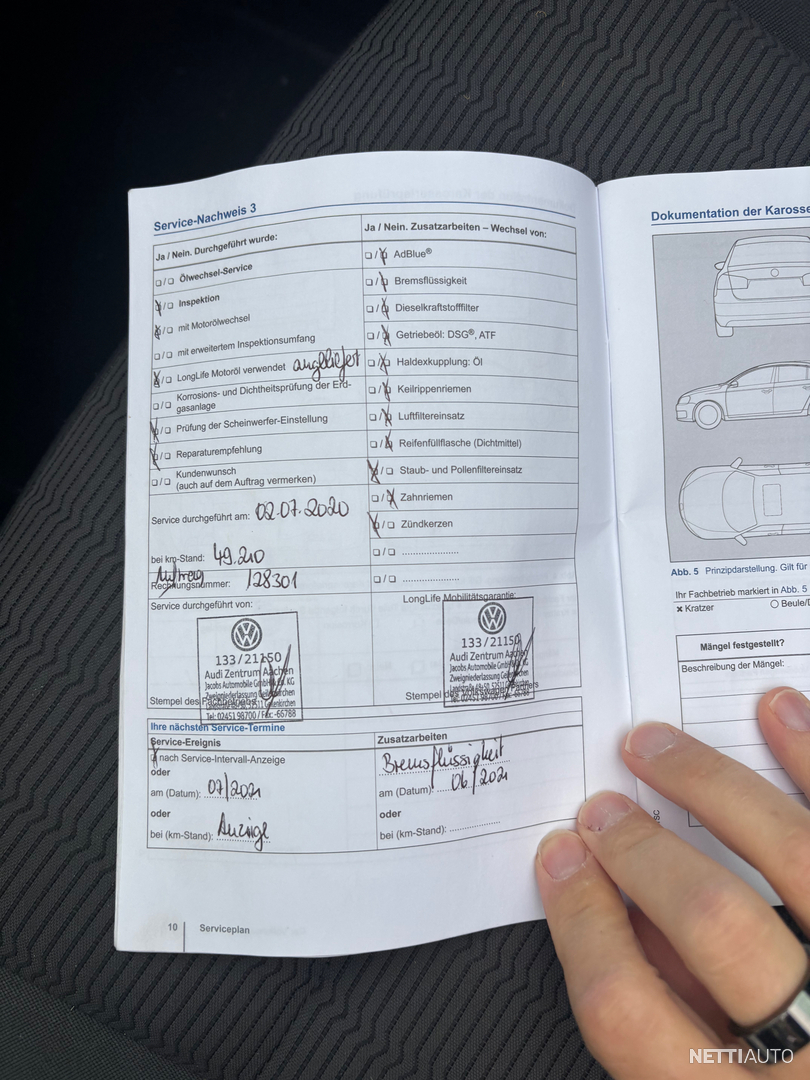 Service-Nachweis 3
Ja / Nein. Durchgeführt wurde:
❏/❏ Ölwechsel-Service
❏/❏ Inspektion
❏/❏ mit Motorölwechsel
❏/❏ mit erweitertem Inspektionsumfang
❏/❏ LongLife Motoröl verwendet angeliefert
❏/❏ Korrosions- und Dichtheitsprüfung der Erd-
gasanlage
❏/❏ Prüfung der Scheinwerfer-Einstellung
❏/❏ Reparaturempfehlung
❏/❏ Kundenwunsch
(auch auf dem Auftrag vermerken)
Service durchgeführt am: 02.07.2020
bei km-Stand: 49.210
Auftrag
Rechnungsnummer: 128301
Service durchgeführt von:
133/21150
Audi Zentrum Aachen
Jacobs Automobile GmbH & Co. KG
Zweigniederlassung Geilenkirchen
Tel: 02451 98700 / Fax: -65788
Stempel des Fachbetriebs
Ja / Nein. Zusatzarbeiten – Wechsel von:
❏/❏ AdBlue®
❏/❏ Bremsflüssigkeit
❏/❏ Dieselkraftstofffilter
❏/❏ Getriebeöl: DSG®, ATF
❏/❏ Haldexkupplung: Öl
❏/❏ Keilrippenriemen
❏/❏ Luftfiltereinsatz
❏/❏ Reifenfüllflasche (Dichtmittel)
❏/❏ Staub- und Pollenfiltereinsatz
❏/❏ Zahnriemen
❏/❏ Zündkerzen
❏/❏ ....................
❏/❏ ....................
LongLife Mobilitätsgarantie:
133/21150
Audi Zentrum Aachen
Jacobs Automobile GmbH & Co. KG
Zweigniederlassung Geilenkirchen
Stempel des Volkswagen Partners
Ihre nächsten Service-Termine
Service-Ereignis
❏ nach Service-Intervall-Anzeige
oder
am (Datum): 07/2021
oder
bei (km-Stand): Anzeige
Zusatzarbeiten
Bremsflüssigkeit
am (Datum): 06/2021
oder
bei (km-Stand): ..................
10 Serviceplan
Dokumentation der Karosse
Abb. 5 Prinzipdarstellung. Gilt für
Ihr Fachbetrieb markiert in Abb. 5
× Kratzer ○ Beule/D
Mängel festgestellt?
Beschreibung der Mängel:
NETTIAUTO